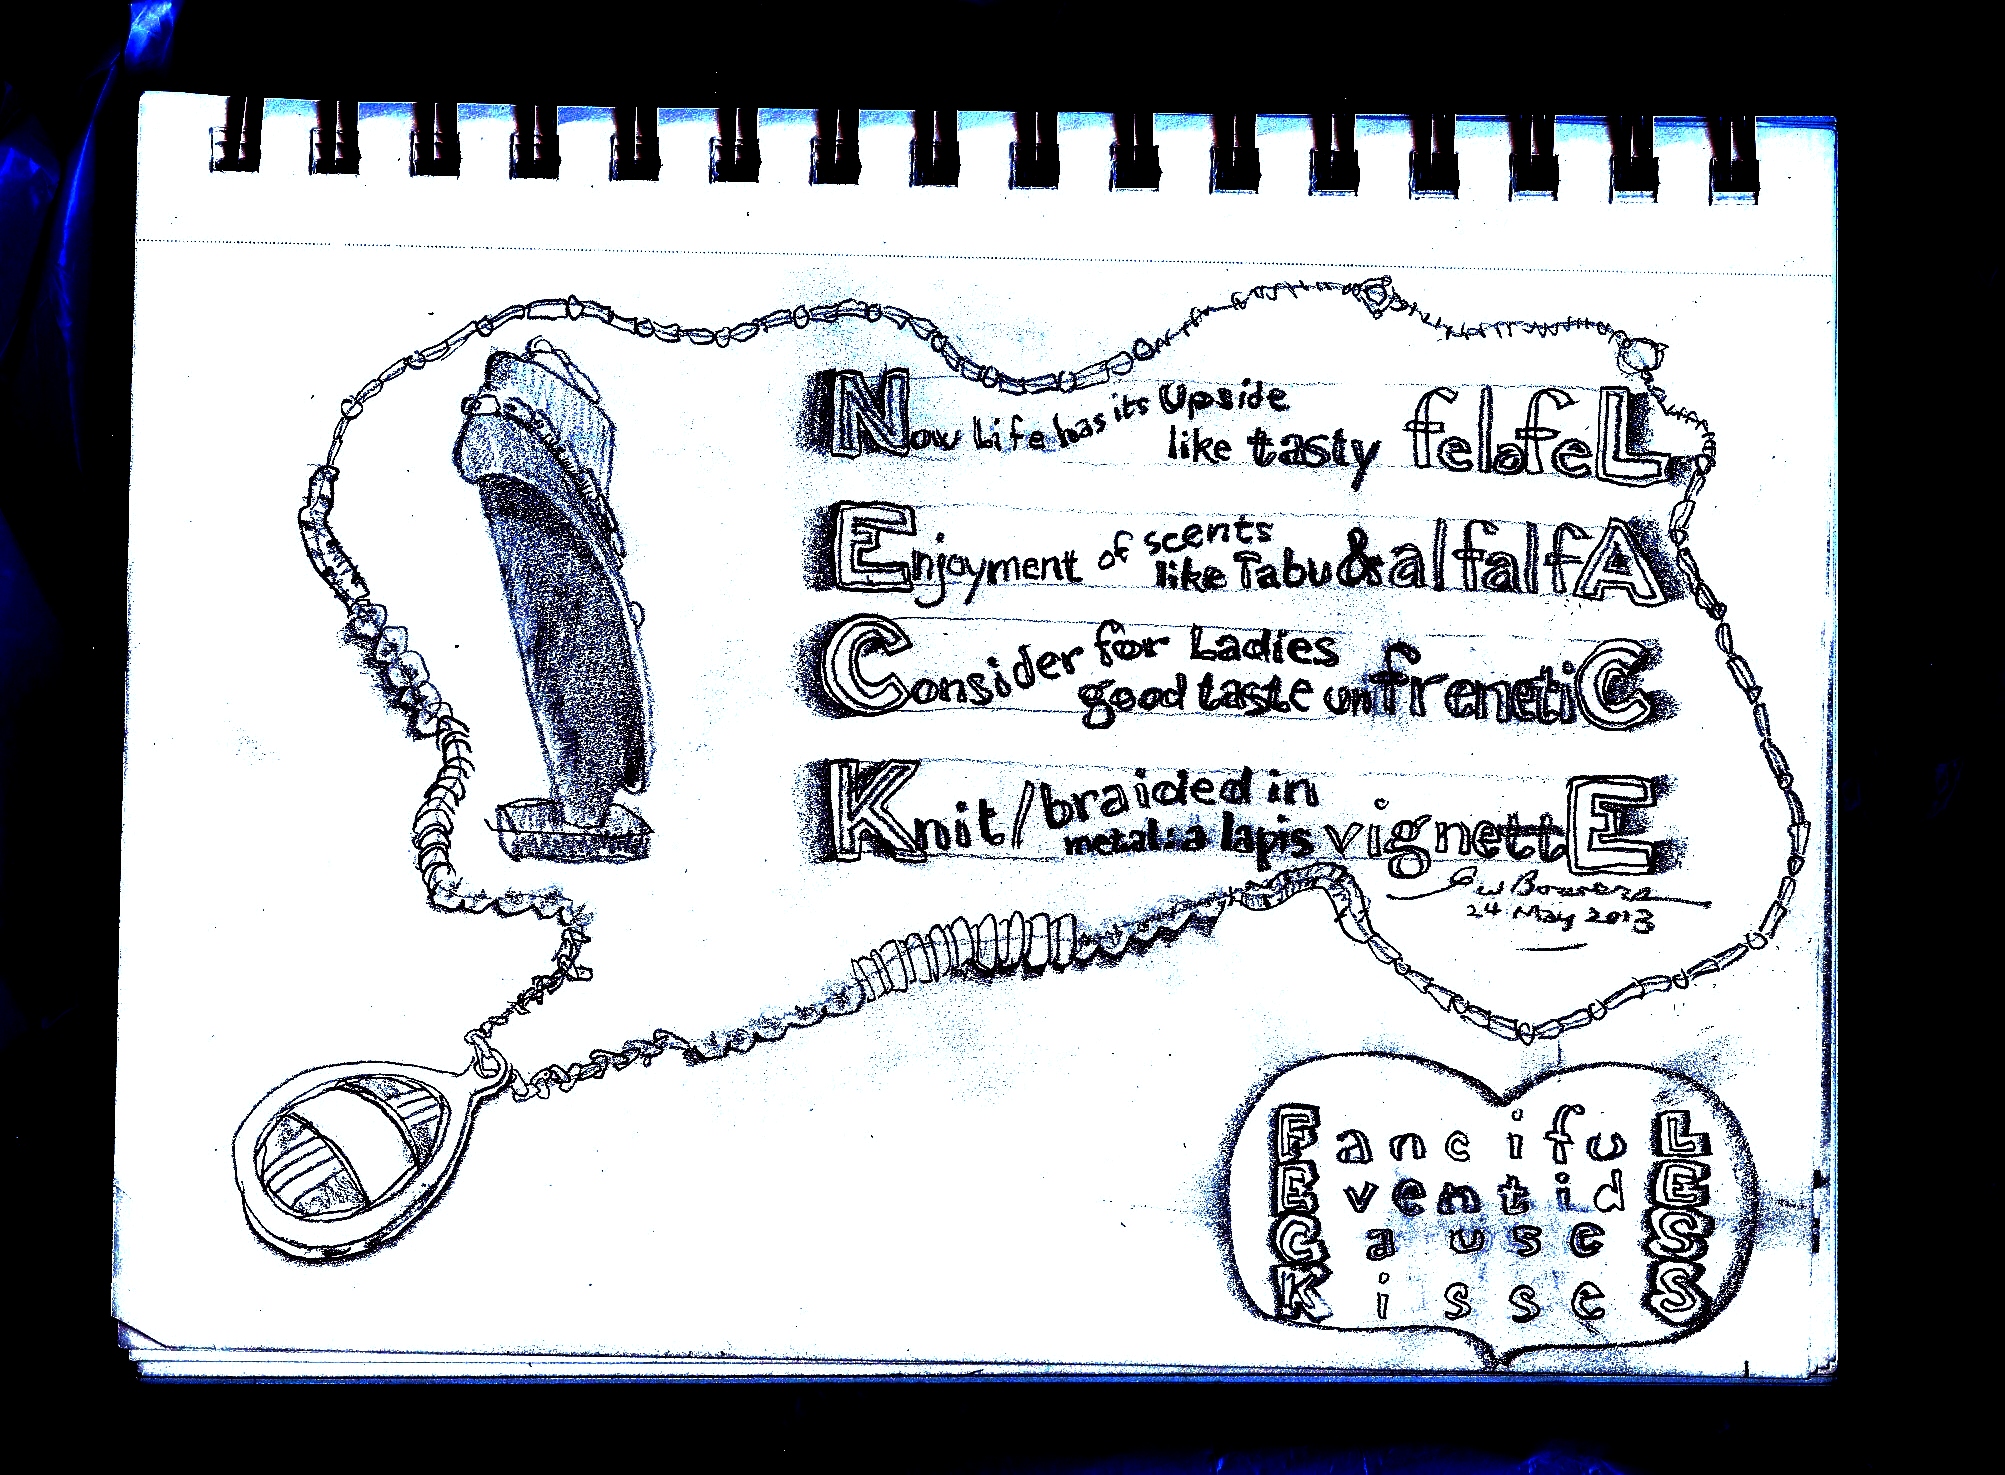 Now Life has its Upside
like tasty felafeL
Enjoyment of scents
like Tabu & alfalfA
Consider for Ladies
good taste unfrenetiC
Knit/braided in
metal: a lapis vignettE
24 May 2013
FancifuL
EventidE
CauseS
KisseS